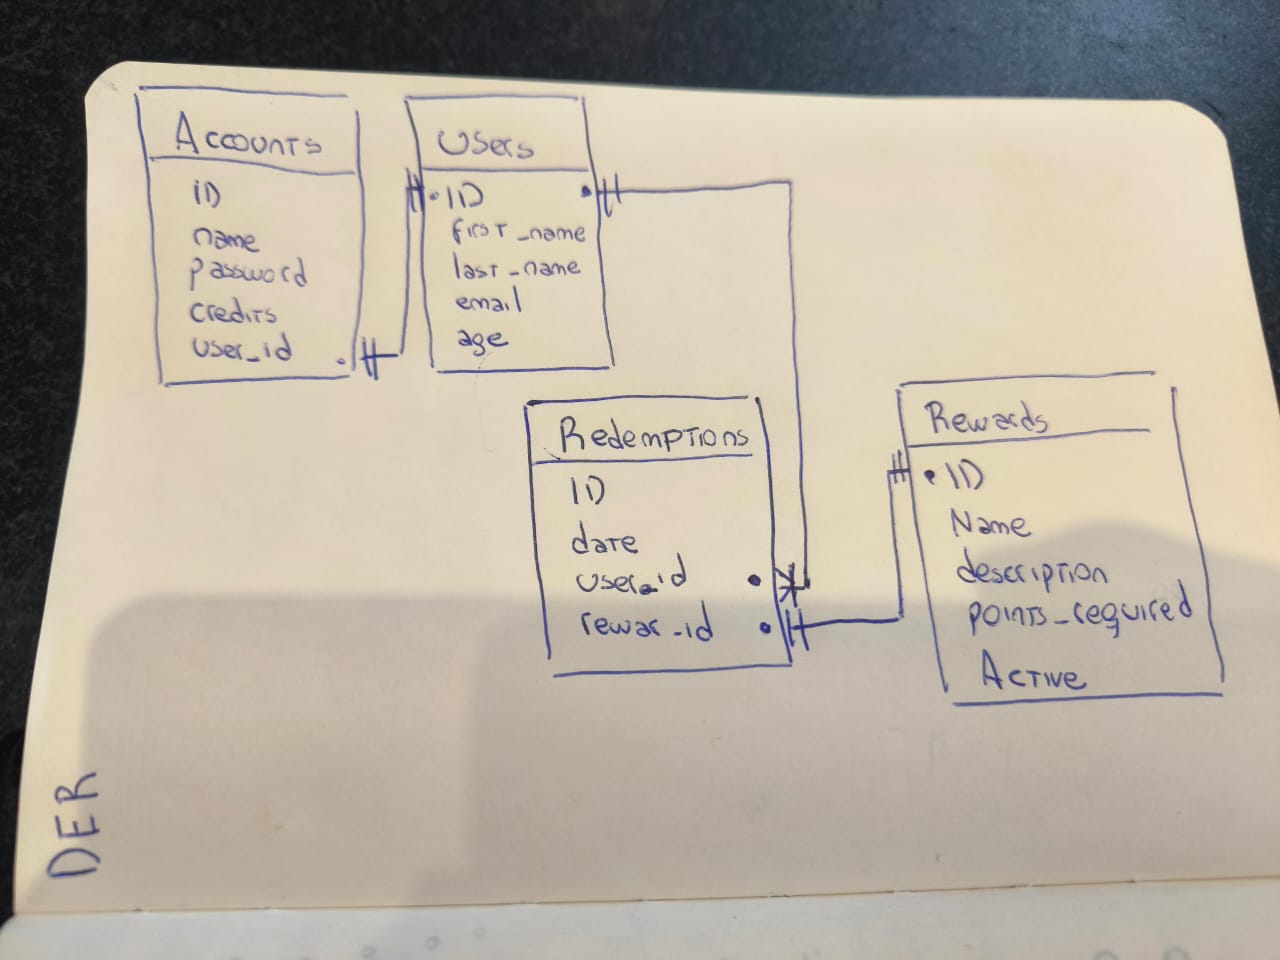 Accounts
ID
name
password
credits
user_id
Users
ID
first_name
last_name
email
age
Redemptions
ID
date
user_id
rewar_id
Rewards
ID
Name
description
points_required
Active
DER